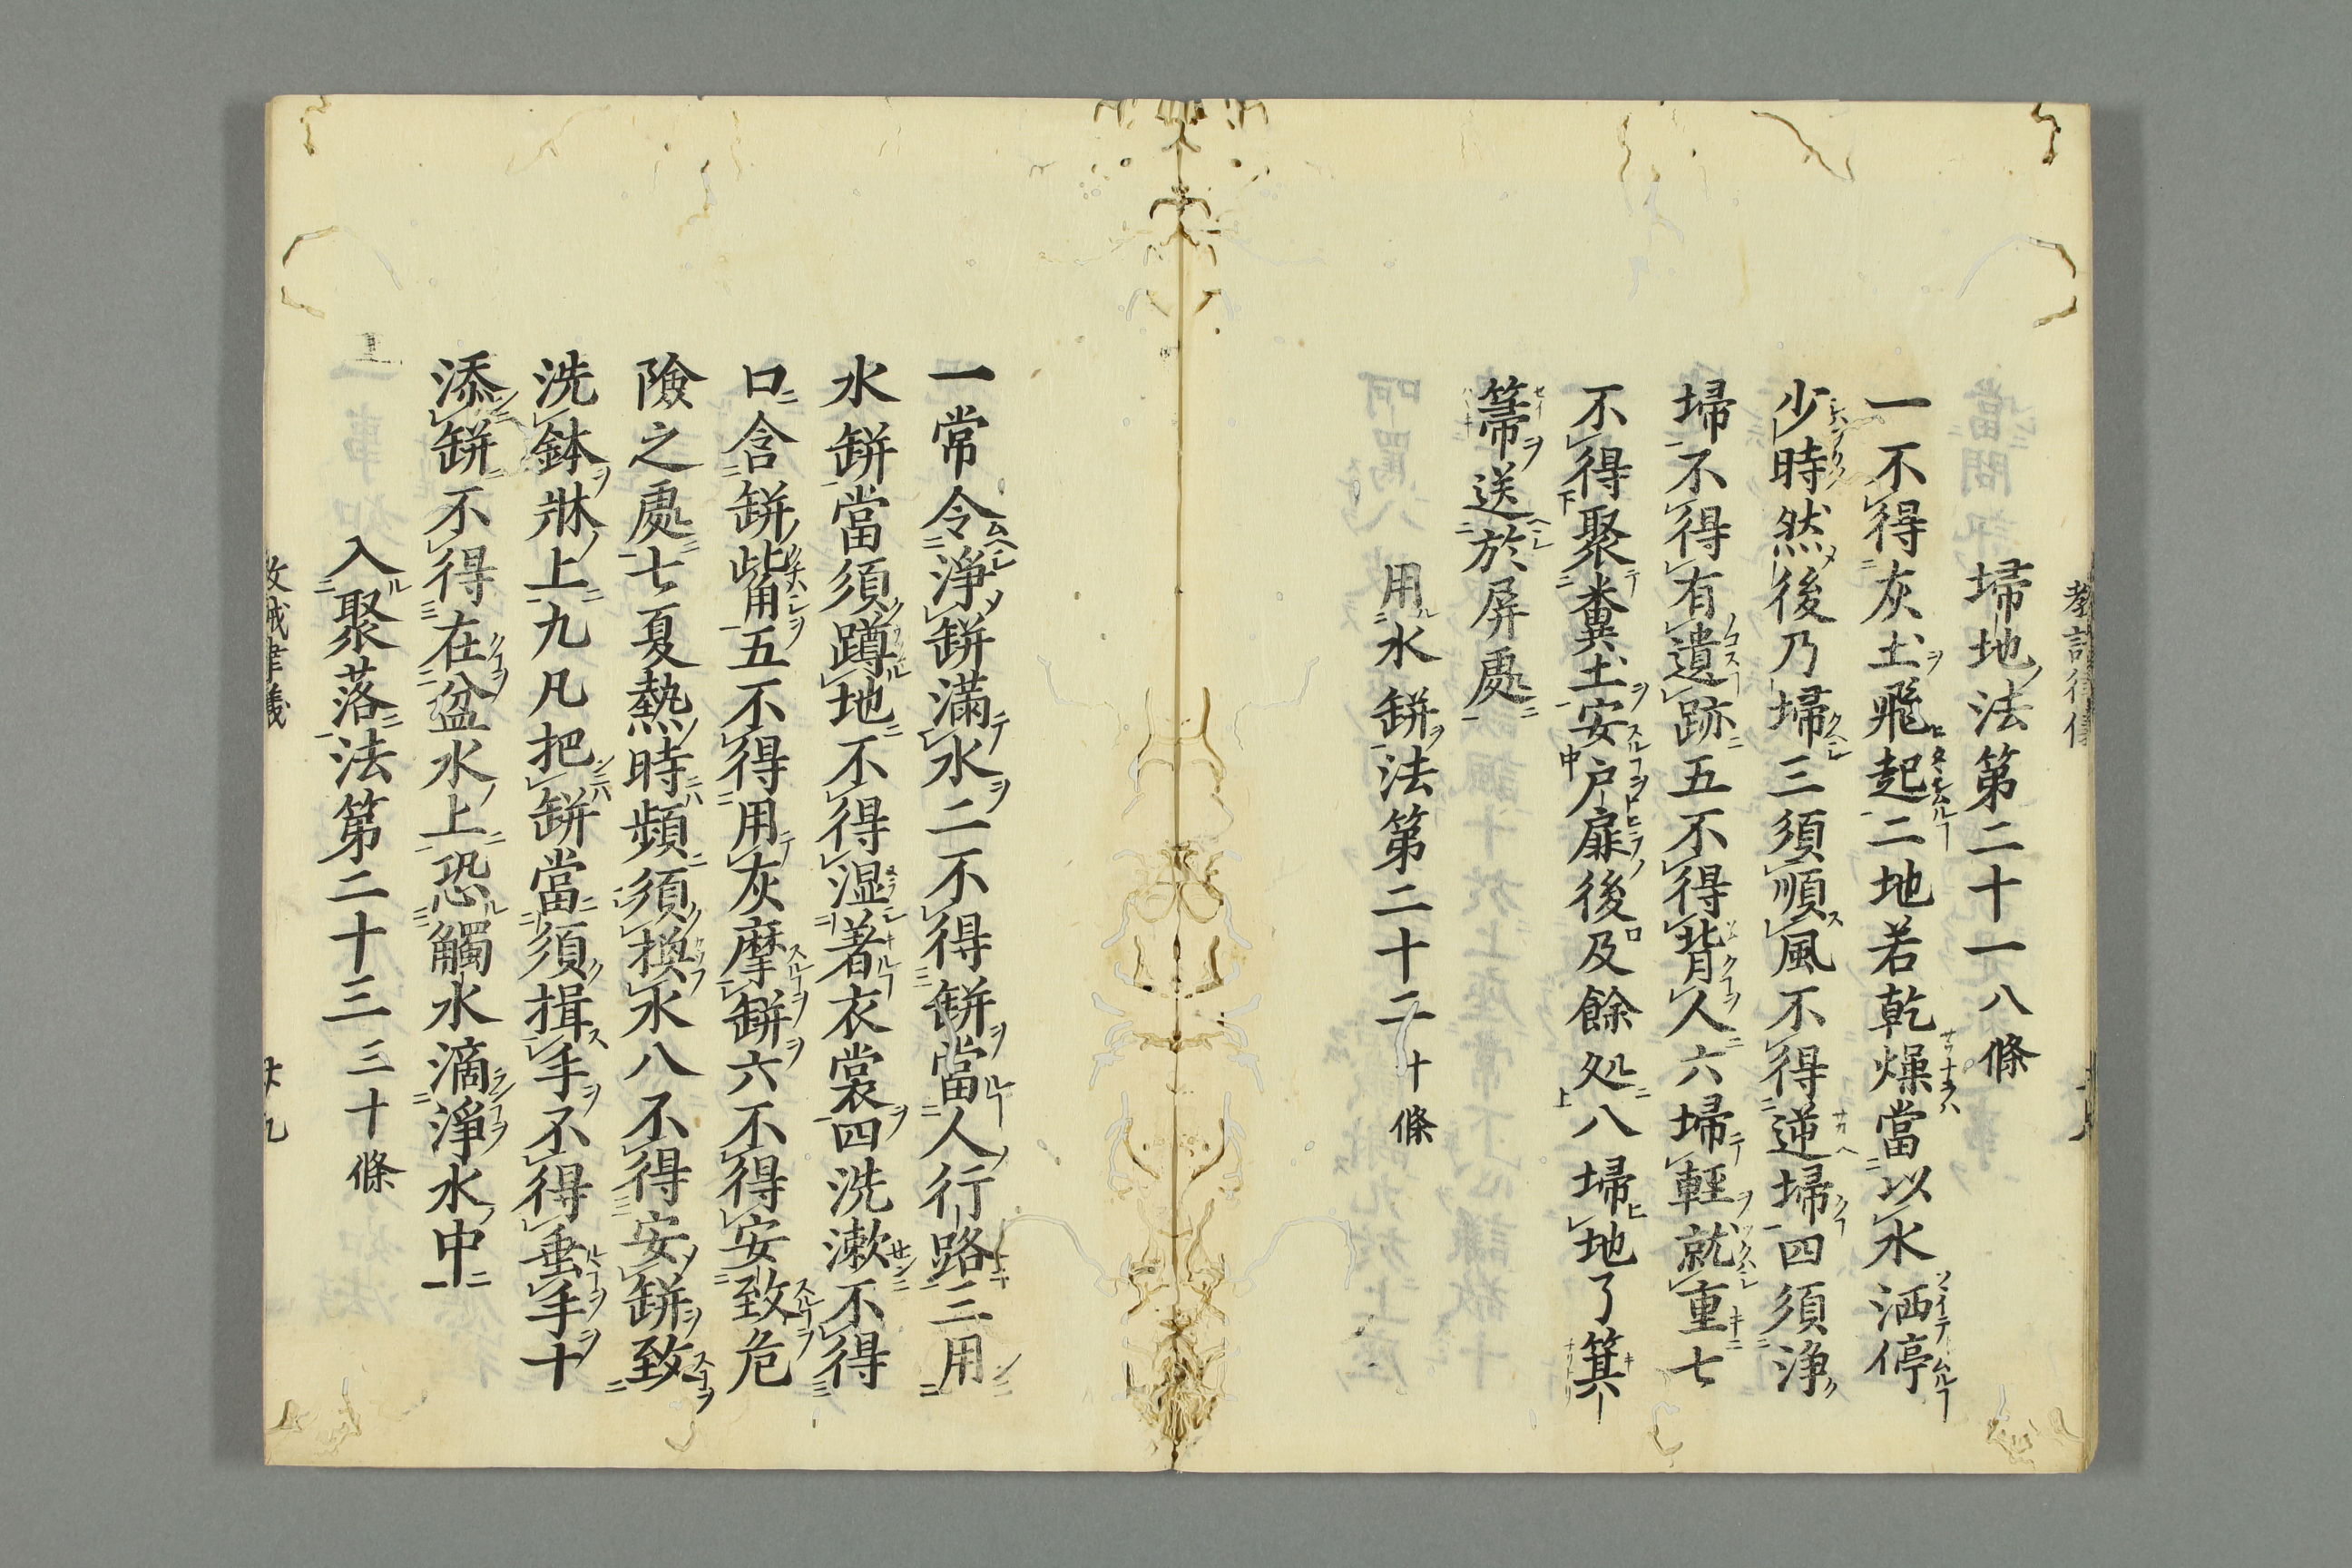 掃地法第二十一八條
一不得灰土飛起二地若乾燥當以水洒停
少時然後乃掃三須順風不得逆掃四須淨
掃不得有遺跡五不得背人六掃輕就重七
不得聚糞土安户扉後及餘処八掃地了箕
箒送於屏處
用水缾法第二十二十條
一常令淨缾滿水二不得缾當人行路三用
水缾當須蹲地不得湿著衣裳四洗漱不得
口含缾觜五不得用灰摩缾六不得安致危
險之處七夏熱時頻須換水八不得安缾致
洗鉢牀上九凡把缾當須揖手不得垂手十
添缾不得在盆水上恐觸水滴淨水中
入聚落法第二十三三十條